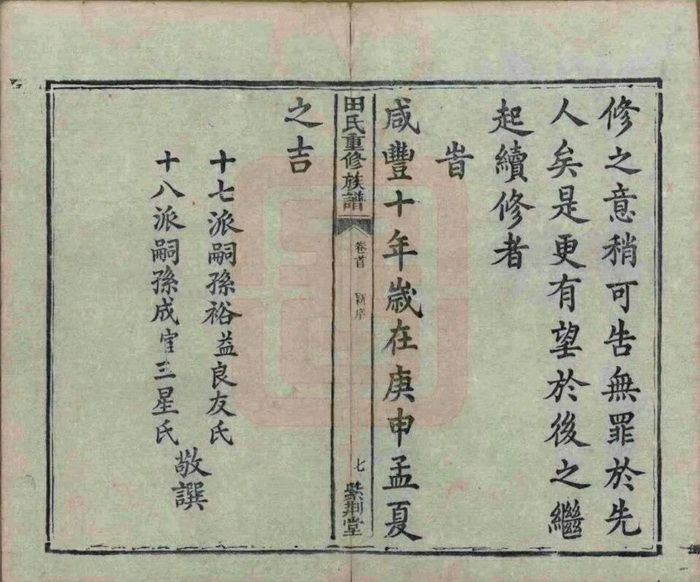 修之意稍可告無罪於先
人矣是更有望於後之繼
起續修者
旹
咸豐十年歲在庚申孟夏
田氏重修族譜
卷首
序
七
紫荆堂
之吉
十七派嗣孫裕益良友氏
十八派嗣孫成官三星氏
敬譔